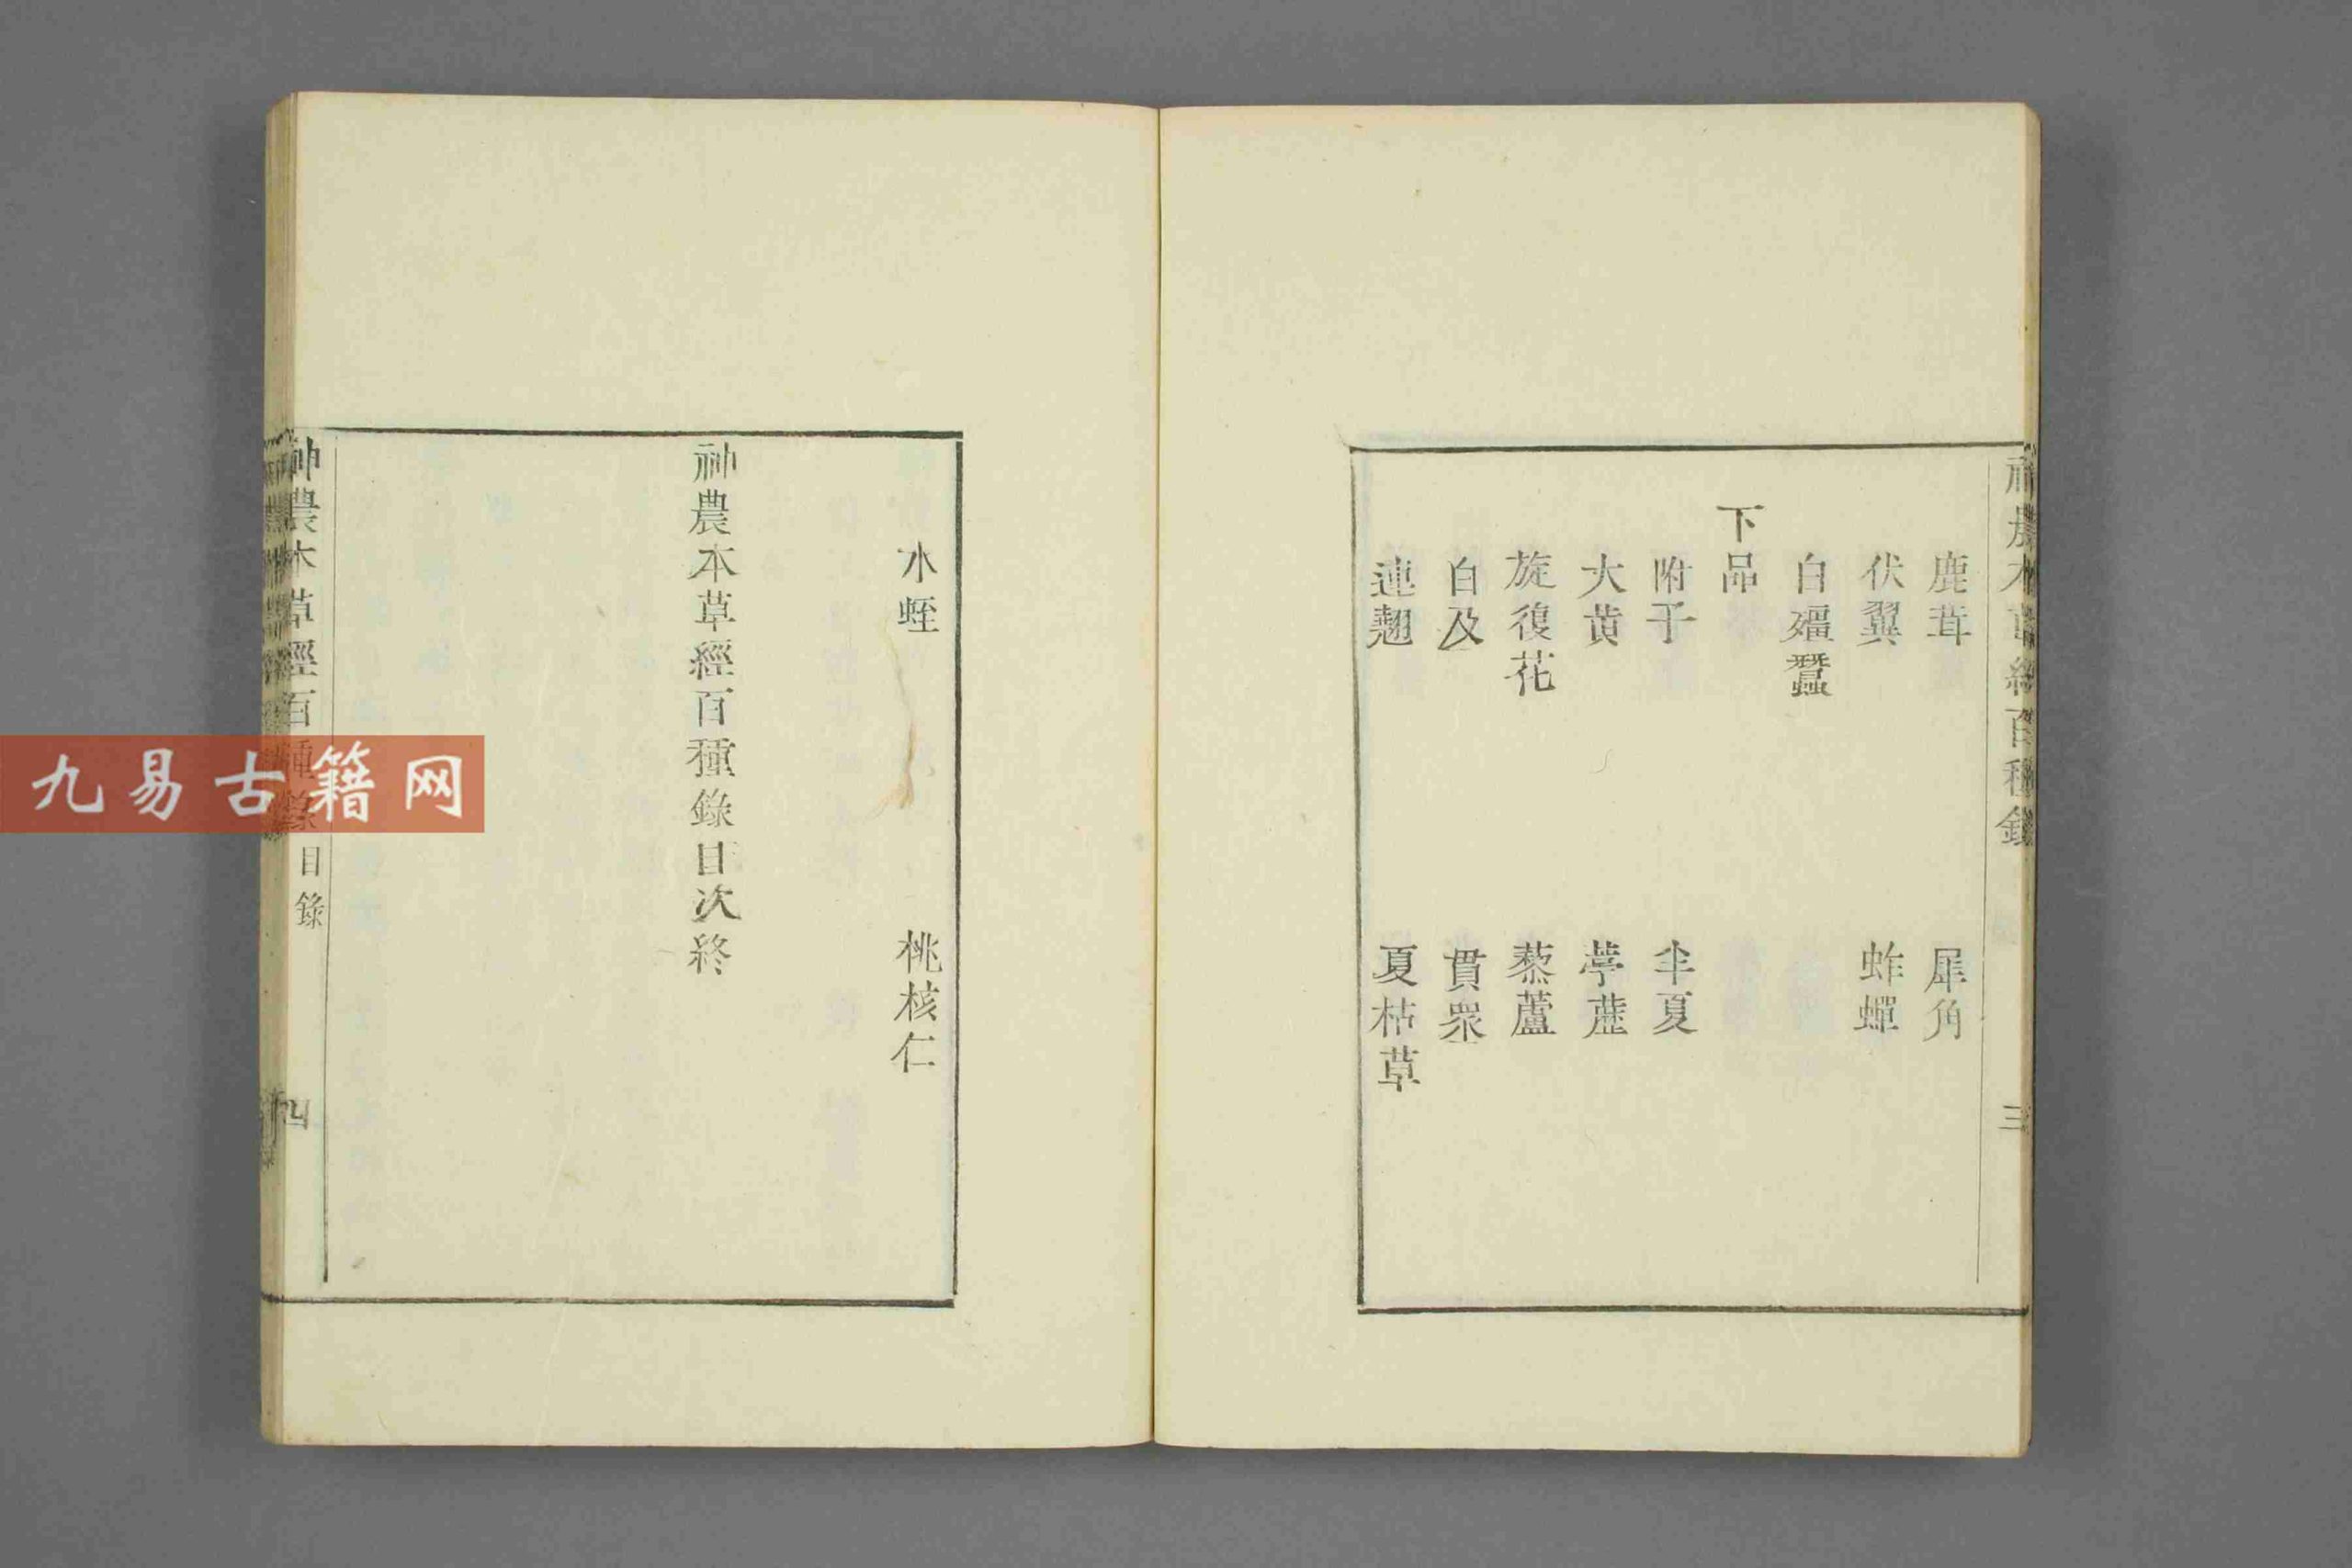 神農本草經百種錄
三
鹿茸 犀角
伏翼 蚱蟬
白殭蠶
下品
附子 半夏
大黄 葶藶
旋復花 藜蘆
白及 貫衆
連翹 夏枯草
水蛭 桃核仁
神農本草經百種錄目次終
神農本草經百種錄 目錄
四
九易古籍网